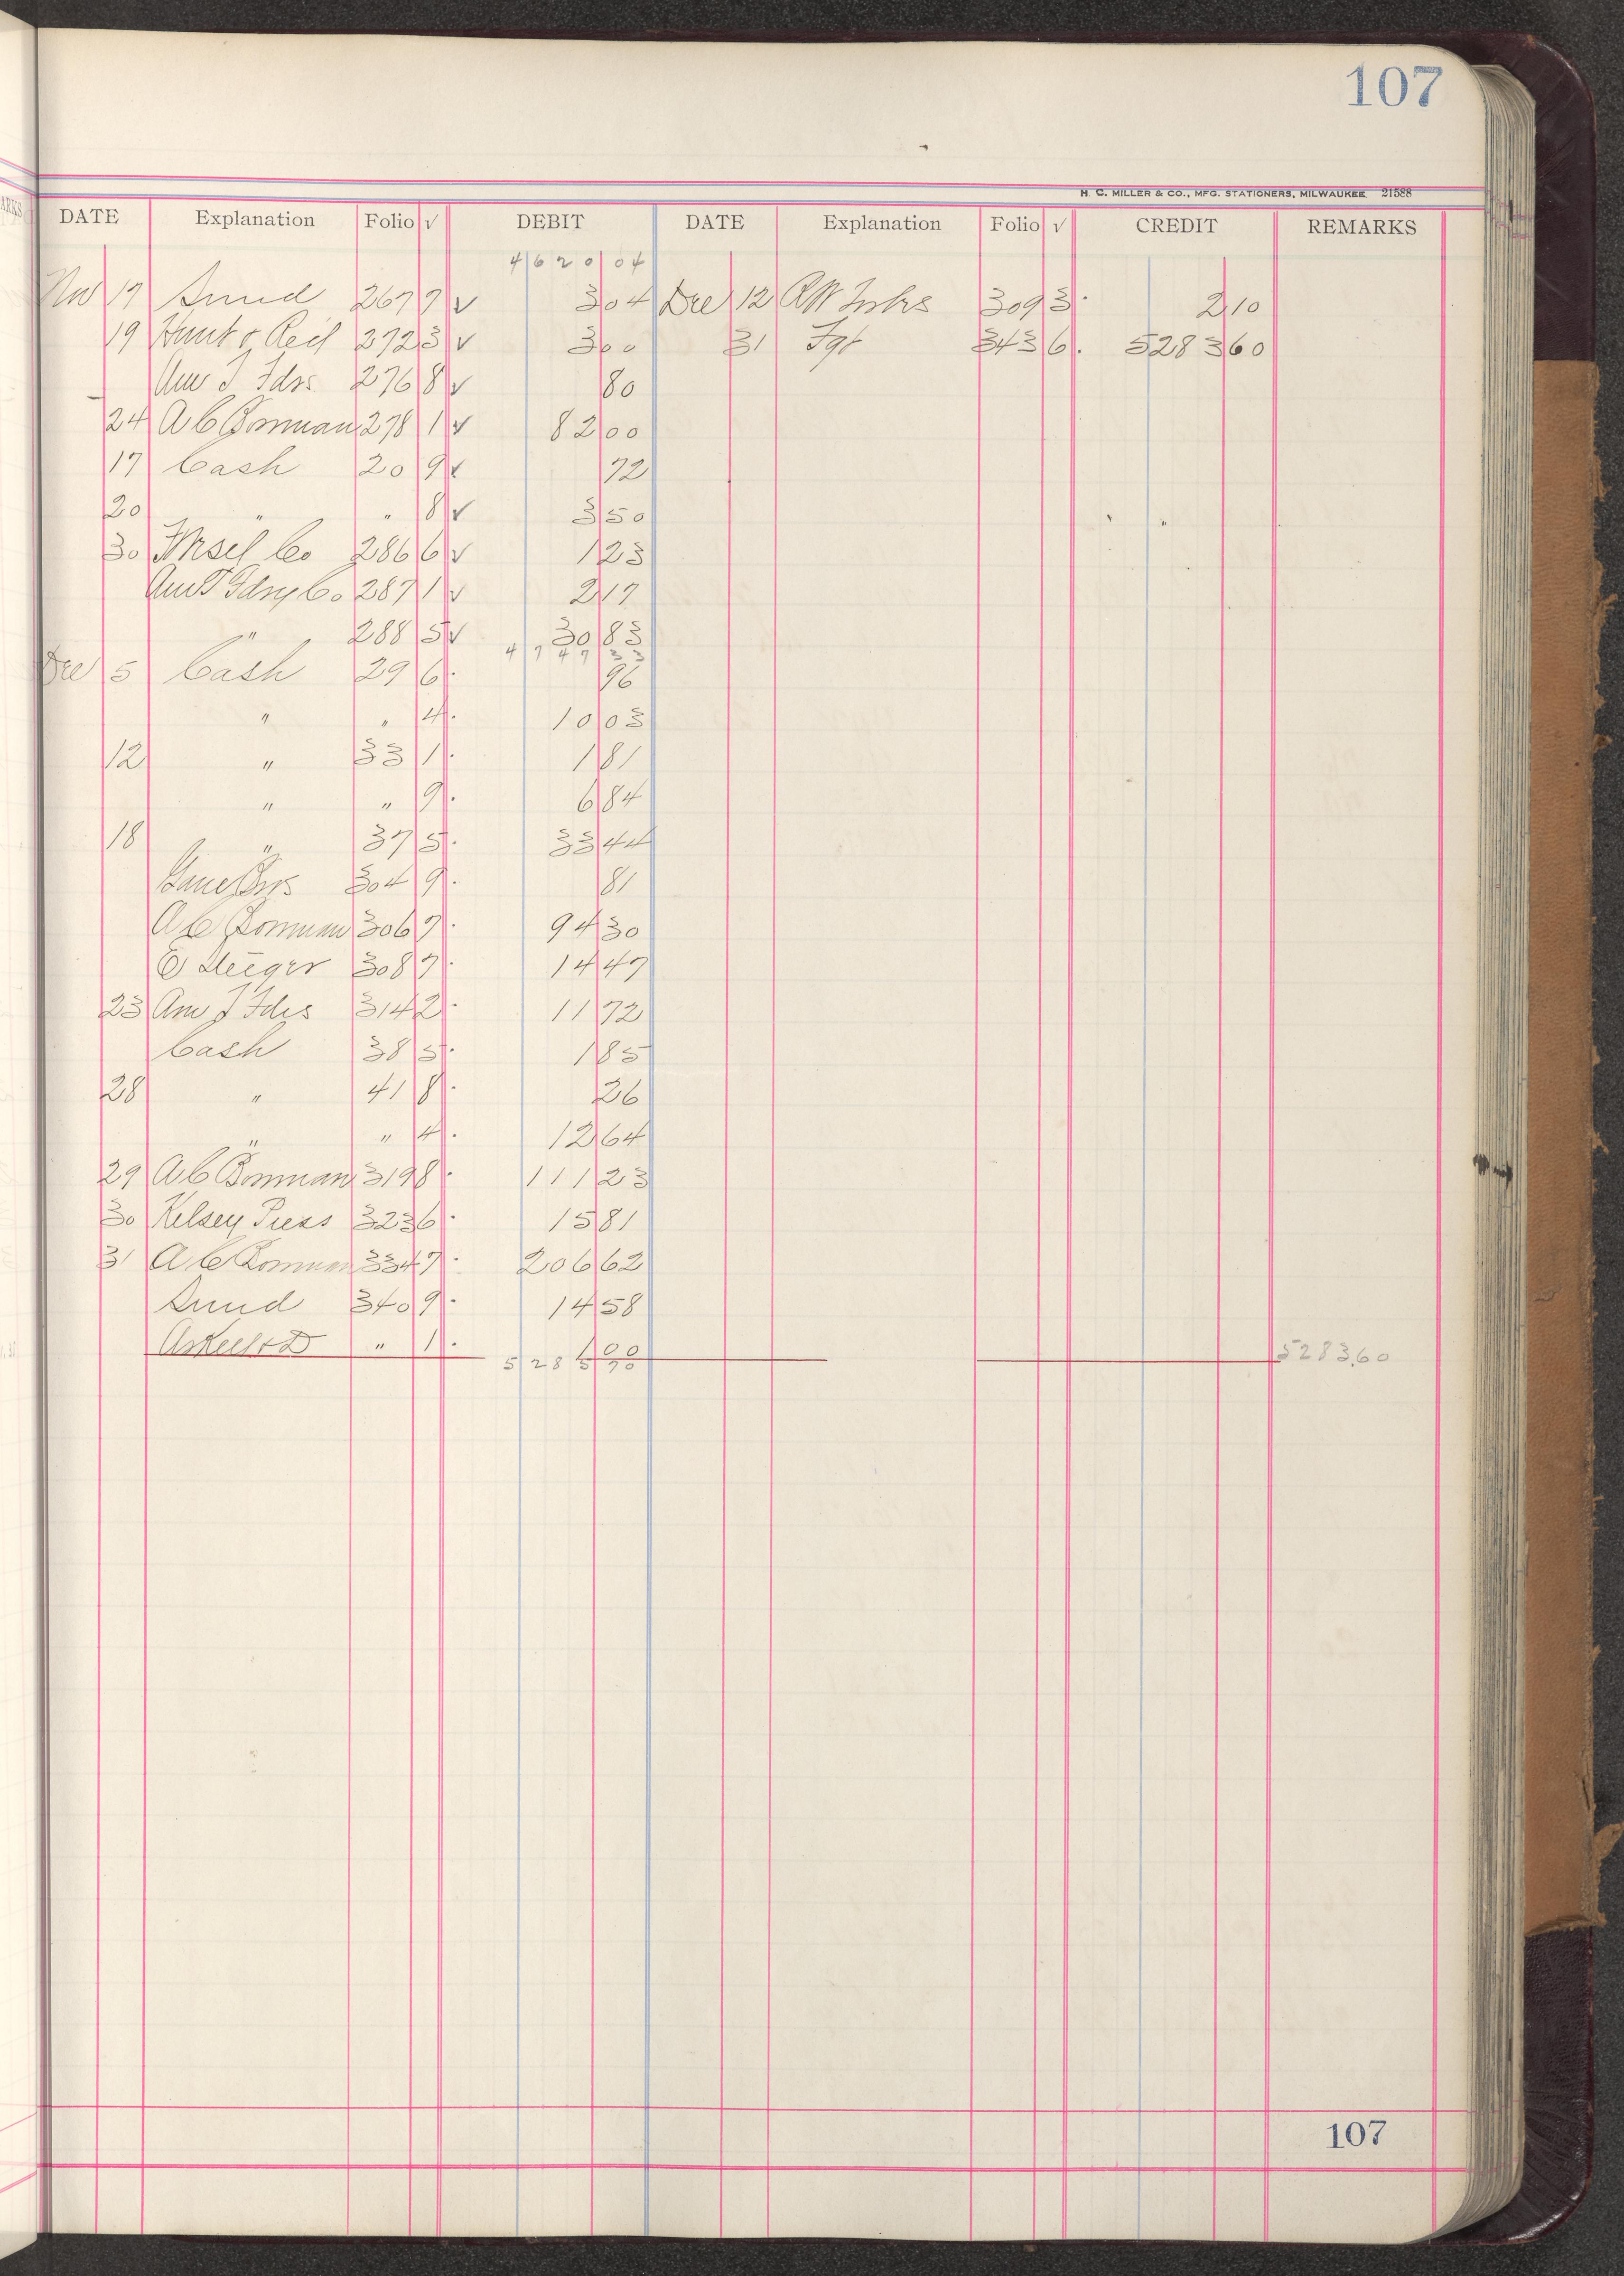 107
H. C. MILLER & CO., MFG. STATIONERS, MILWAUKEE 21588
DATE Explanation Folio √ DEBIT DATE Explanation Folio √ CREDIT REMARKS
4620 04
Nov 17 Sund 267 7 √ 3 04 Dec 12 309 3 2 10
19 Hunt & 272 3 √ 3 00 31 343 6 5283 60
Am T Fdrs 276 8 √ 80
24 A C Bornman 278 1 √ 82 00
17 Cash 20 9 √ 72
20 " " 8 √ 3 50
30 Co 286 6 √ 1 23
Am T Fdry Co 287 1 √ 2 17
" 288 5 √ 30 83
4747 33
Dec 5 Cash 29 6 96
" " 4 10 03
12 " 33 1 1 81
" " 9 6 84
18 " 37 5 33 44
Gane Bros 304 9 81
A C Bornman 306 7 94 30
E Steiger 308 7 14 47
23 Am T Fdrs 314 2 11 72
Cash 38 5 1 85
28 " 41 8 26
" " 4 12 64
29 A C Bornman 319 8 111 23
30 Kelsey Press 323 6 15 81
31 A C Bornman 334 7 206 62
Sund 340 9 14 58
" 1 1 00
5285 70 5283.60
107